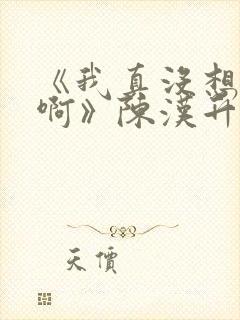 《我真没想
啊》陈汉升
天價